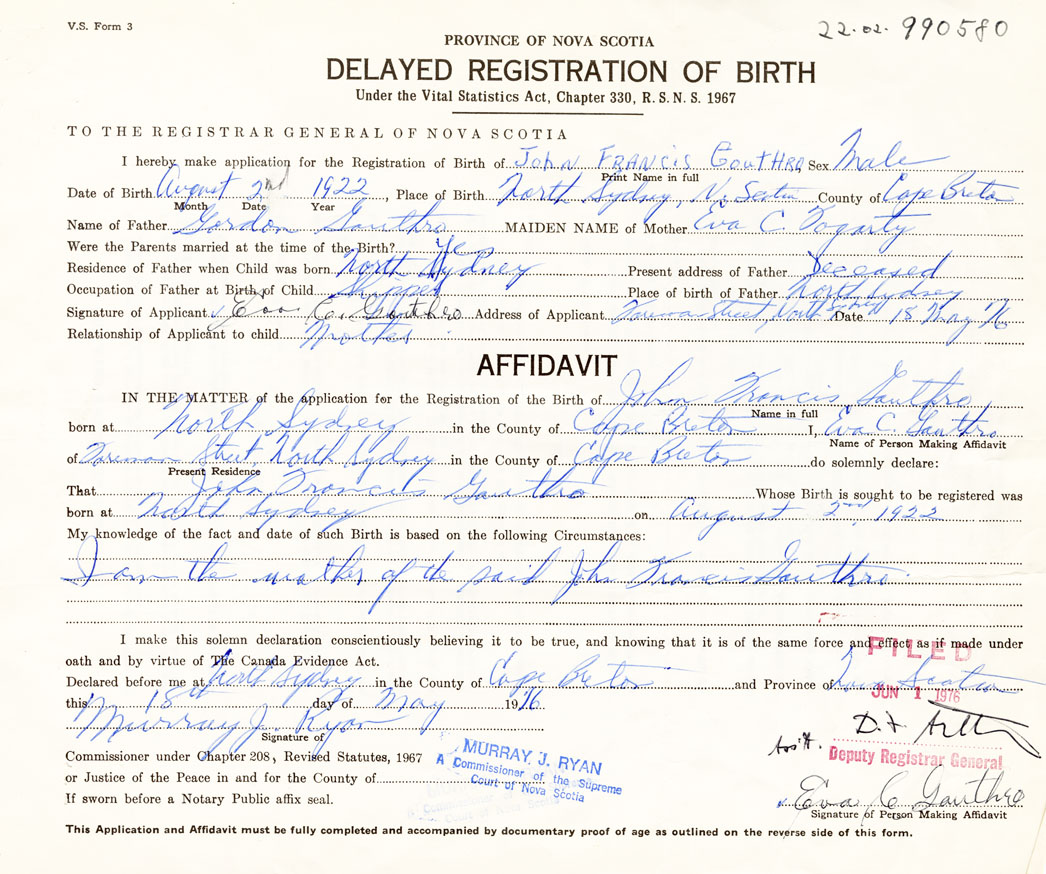 V.S. Form 3
22.02. 990580
PROVINCE OF NOVA SCOTIA
DELAYED REGISTRATION OF BIRTH
Under the Vital Statistics Act, Chapter 330, R.S.N.S. 1967
TO THE REGISTRAR GENERAL OF NOVA SCOTIA
I hereby make application for the Registration of Birth of John FRANCIS GouthRo Sex Male
Print Name in full
Date of Birth August 2nd 1922, Place of Birth North Sydney, N. Scotia County of Cape Breton
Month Date Year
Name of Father Gordon Gouthro MAIDEN NAME of Mother Eva C. Fogarty
Were the Parents married at the time of the Birth? Yes
Residence of Father when Child was born North Sydney Present address of Father Deceased
Occupation of Father at Birth of Child Place of birth of Father North Sydney
Signature of Applicant Eva C. Gouthro Address of Applicant Street, North Synd Date 18 May '76
Relationship of Applicant to child Mother
AFFIDAVIT
IN THE MATTER of the application for the Registration of the Birth of John Francis Gouthro
Name in full
born at North Sydney in the County of Cape Breton I, Eva C. Gouthro
Name of Person Making Affidavit
of Street, North Sydney in the County of Cape Breton do solemnly declare:
Present Residence
That John Francis Gouthro Whose Birth is sought to be registered was
born at North Sydney on August 2nd, 1922
My knowledge of the fact and date of such Birth is based on the following Circumstances:
I am the mother of the said John Francis Gouthro.
I make this solemn declaration conscientiously believing it to be true, and knowing that it is of the same force and effect as if made under
oath and by virtue of The Canada Evidence Act.
FILED
Declared before me at North Sydney in the County of Cape Breton and Province of Nova Scotia
this 18th day of May 1976
JUN 1 1976
Murray J. Ryan
Signature of
Ass't.
Deputy Registrar General
Commissioner under Chapter 208, Revised Statutes, 1967
MURRAY J. RYAN
A Commissioner of the Supreme
Court of Nova Scotia
or Justice of the Peace in and for the County of
If sworn before a Notary Public affix seal.
Eva C Gouthro
Signature of Person Making Affidavit
This Application and Affidavit must be fully completed and accompanied by documentary proof of age as outlined on the reverse side of this form.